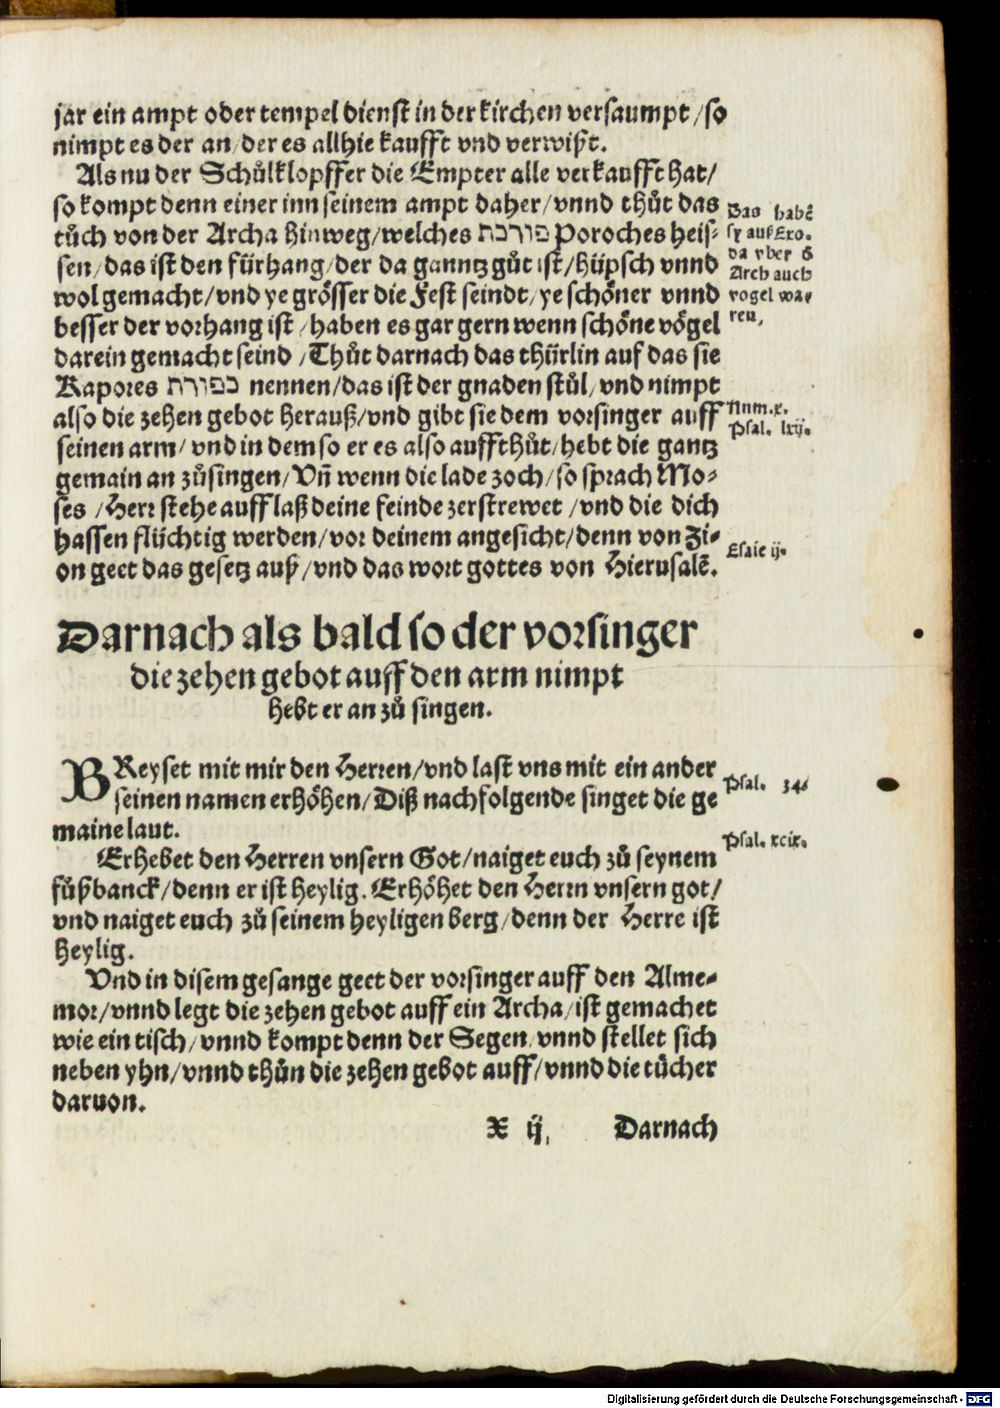 jar ein ampt oder tempel dienst in der kirchen versaumpt /so
nimpt es der an/ der es allhie kaufft vnd verwißt.
Als nu der Schůlklopffer die Empter alle verkaufft hat/
so kompt denn einer inn seinem ampt daher/ vnnd thůt das
tůch von der Archa hinweg/welches פורכת Poroches heis-
sen/das ist den fürhang/der da ganntz gůt ist/hüpsch vnnd
wol gemacht/vnd ye grösser die Fest seindt/ye schöner vnnd
besser der vorhang ist /haben es gar gern wenn schöne vögel
darein gemacht seind /Thůt darnach das thürlin auf das sie
Kapores כפורת nennen/das ist der gnaden stůl/vnd nimpt
also die zehen gebot herauß/vnd gibt sie dem vorsinger auff
seinen arm/ vnd in dem so er es also auffthůt/hebt die gantz
gemain an zůsingen/Vñ wenn die lade zoch/so sprach Mo-
ses /Herr stehe auff laß deine feinde zerstrewet /vnd die dich
hassen flüchtig werden/vor deinem angesicht/denn von Zi-
on geet das gesetz auß/vnd das wort gottes von Hierusalē.
Das habē
sy auß Exo.
da vber d
Arch auch
vogel wa-
ren,
Num.x.
Psal. lxij.
Esaie ij.
Darnach als bald so der vorsinger
die zehen gebot auff den arm nimpt
hebt er an zů singen.
BReyset mit mir den Herren/vnd last vns mit ein ander
seinen namen erhöhen/Diß nachfolgende singet die ge
maine laut.
Psal. 34.
Erhebet den Herren vnsern Got/naiget euch zů seynem
fůßbanck/denn er ist heylig. Erhöhet den Herrn vnsern got/
vnd naiget euch zů seinem heyligen berg/denn der Herre ist
heylig.
Psal. xcix.
Vnd in disem gesange geet der vorsinger auff den Alme-
mor/vnnd legt die zehen gebot auff ein Archa/ist gemachet
wie ein tisch/vnnd kompt denn der Segen/vnnd stellet sich
neben yhn/vnnd thůn die zehen gebot auff/vnnd die tücher
daruon.
X ij, Darnach
Digitalisierung gefördert durch die Deutsche Forschungsgemeinschaft - DFG